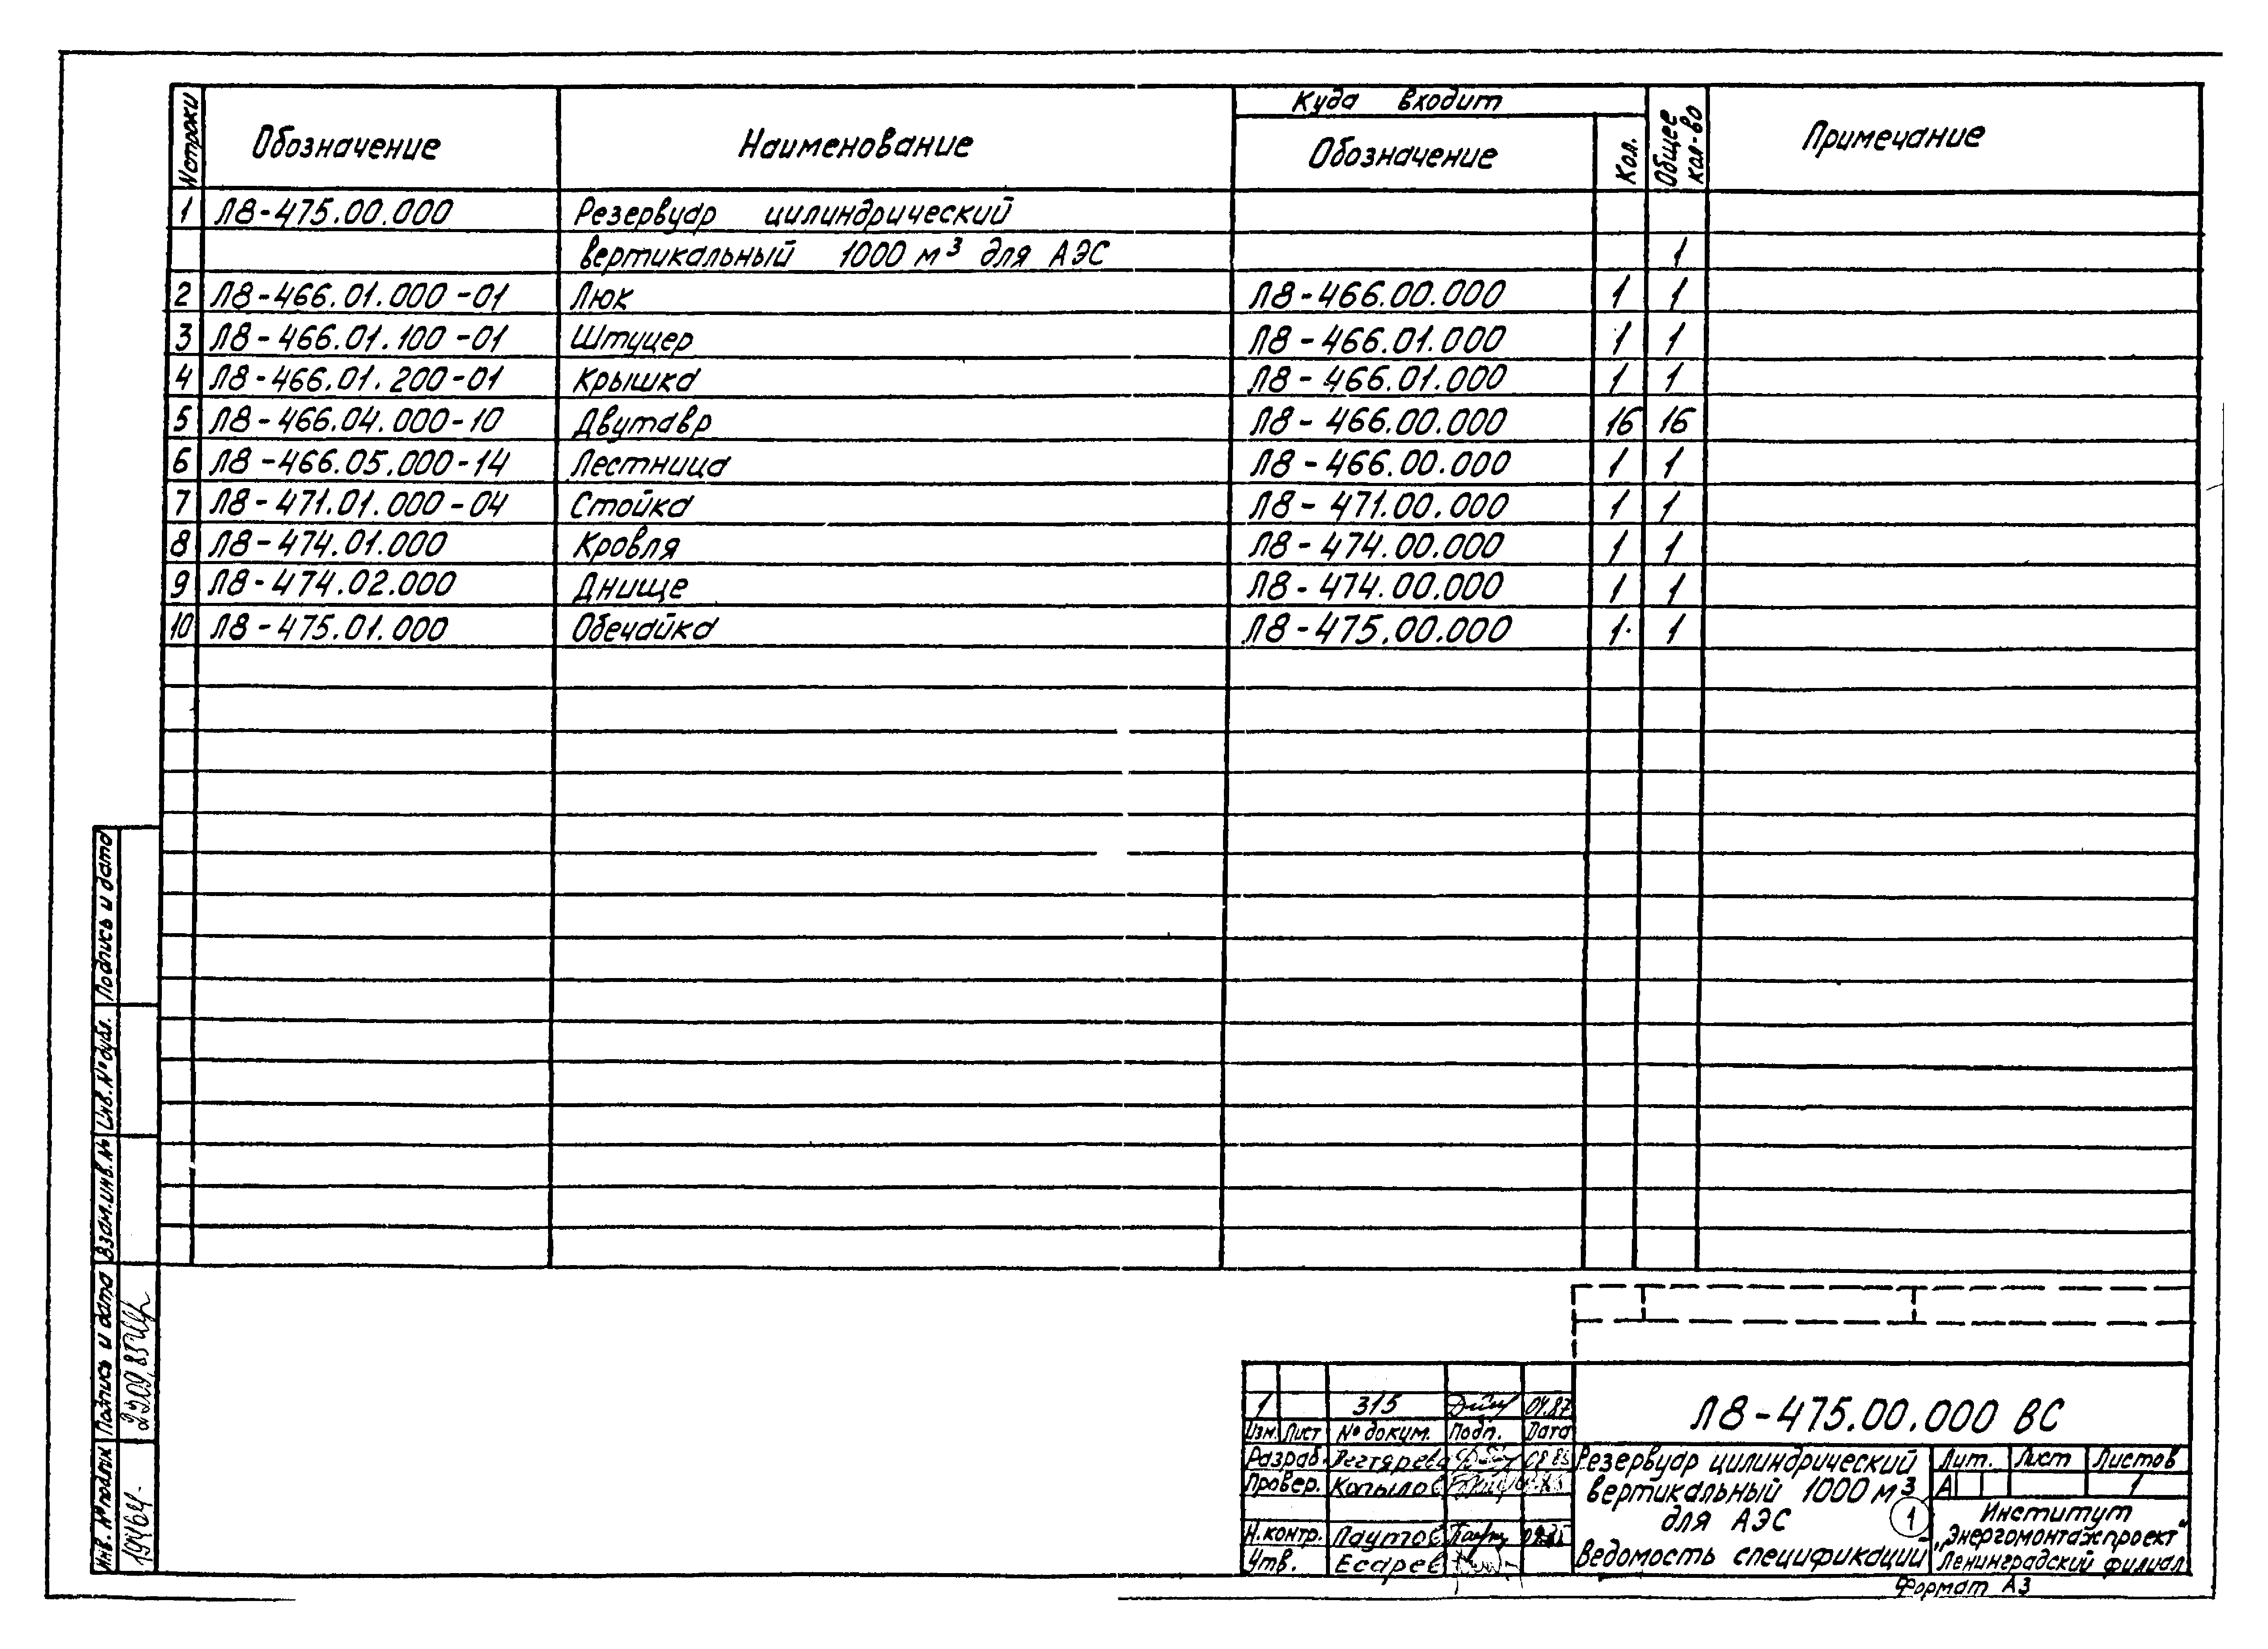 № строки Обозначение Наименование Куда входит Общее кол-во Примечание
Обозначение Кол.
1 Л8-475.00.000 Резервуар цилиндрический
вертикальный 1000 м³ для АЭС 1
2 Л8-466.01.000-01 Люк Л8-466.00.000 1 1
3 Л8-466.01.100-01 Штуцер Л8-466.01.000 1 1
4 Л8-466.01.200-01 Крышка Л8-466.01.000 1 1
5 Л8-466.04.000-10 Двутавр Л8-466.00.000 16 16
6 Л8-466.05.000-14 Лестница Л8-466.00.000 1 1
7 Л8-471.01.000-04 Стойка Л8-471.00.000 1 1
8 Л8-474.01.000 Кровля Л8-474.00.000 1 1
9 Л8-474.02.000 Днище Л8-474.00.000 1 1
10 Л8-475.01.000 Обечайка Л8-475.00.000 1 1
Подпись и дата
Инв. № дубл.
Взам. инв. №
Подпись и дата
Инв. № подлин
1 315 04.87
Изм. Лист № докум. Подп. Дата
Разраб. Дегтярева 08.85
Провер. Копылов
Н.контр. Паутов
Утв. Есарев
Л8-475.00.000 ВС
Резервуар цилиндрический
вертикальный 1000 м³
для АЭС 1
Ведомость спецификаций
Лит. Лист Листов
А 1
Институт
„Энергомонтажпроект"
Ленинградский филиал
Формат А3